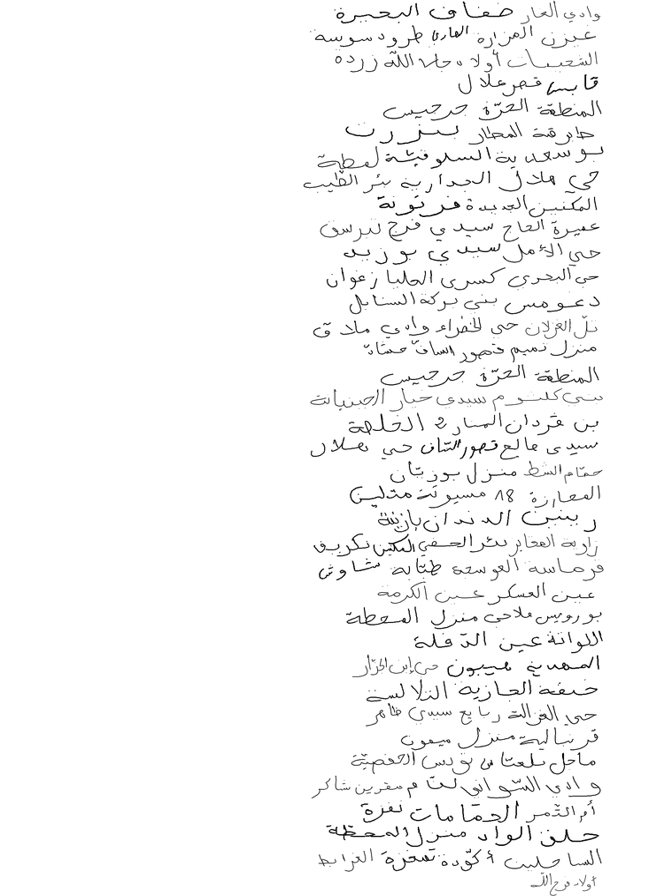 وادي الغار ضفاف البحيرة
عيزن المزارة طرود سوسة
الشعيبات أولاد جاب اللّه زردة
قابس قصر علال
المنطقة الحرّة جرجيس
طبرقة المطار بنزرت
بوسعدية السلوقيّة لمطة
حي هلال الجدارية بئر الطّيب
المكنين الجديدة فرتونة
عميرة الحاج سيدي فرج تبرسق
حي الأمل سيدي بوزيد
حي البحري كسرى العليا زغوان
دغومس بني بركة السنابل
تلّ الغزلان حي الخضراء وادي ملاق
منزل تميم قصور الساف حسّان
المنطقة الحرّة جرجيس
سي كلثوم سيدي خيار الجبنيانة
بن ڨردان المنار 2 الخلجة
سيدي صالح قصور السّاف حي هلال
حمّام الشط منزل بوزيّان
المغازة 18 مسيوتة متلين
ربنين الدندان بازينة
زاوية بئر الحفي المكنين تكريف
قرماسة الوسعة طبّابة شاوش
عين العسكر عين الكرمة
بورويس ملاحي منزل المحطة
اللوانة عين الدّفلة
المهدية هيبون حي ابن الجزّار
خنقة الجازية التلالسة
حي الغزالة ربايع سيدي ظاهر
قرنبالية منزل ميمون
ماجل بلعبّاس تونس الحفصيّة
وادي الشواني مقرين شاكر
أم الثّمر الحمّامات نفزة
حلق الواد منزل المحطّة
الساحلين أكّودة تمغزة الغرابط
أولاد فرج اللّه